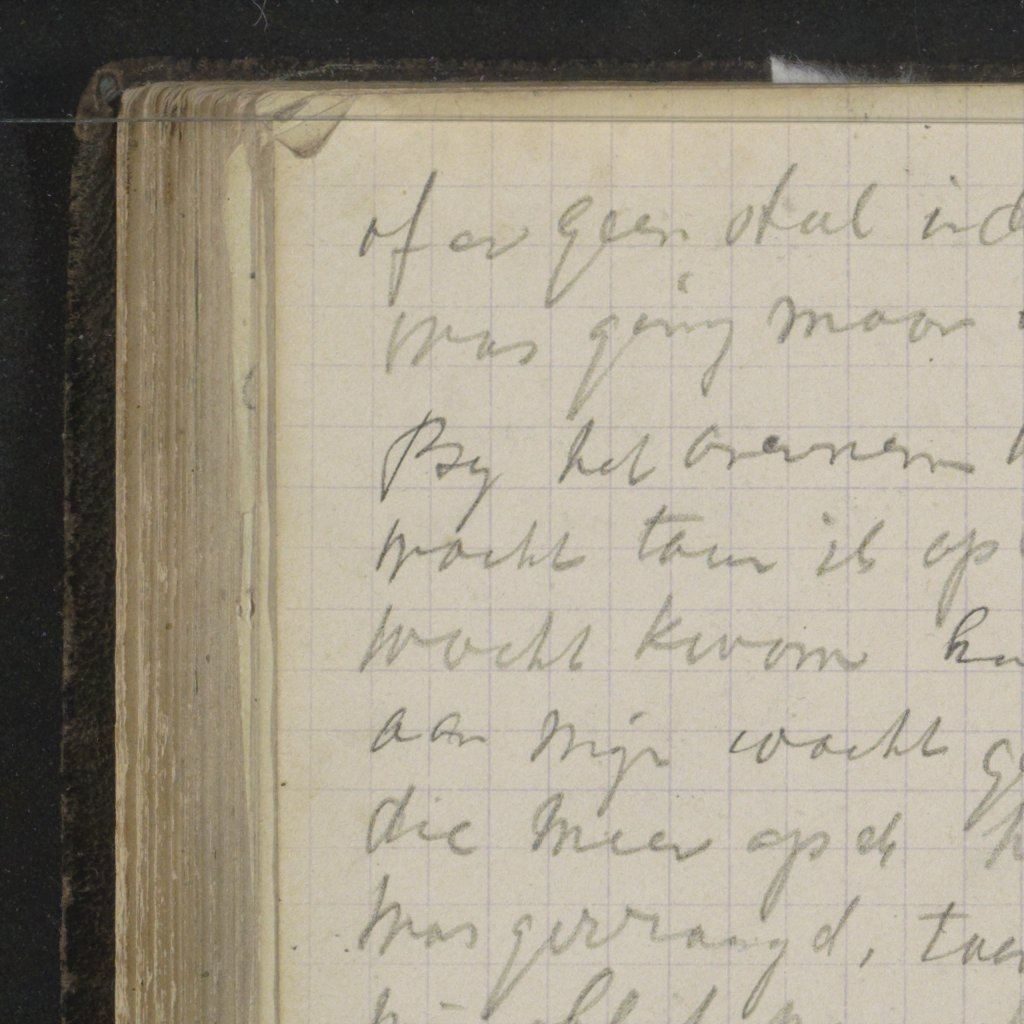 of er geen stal in
was ging maar
By het overnem
wacht toen ik op
wacht kwam ha
aan mijn wacht ge
die meer op de
was gerrangd, toen